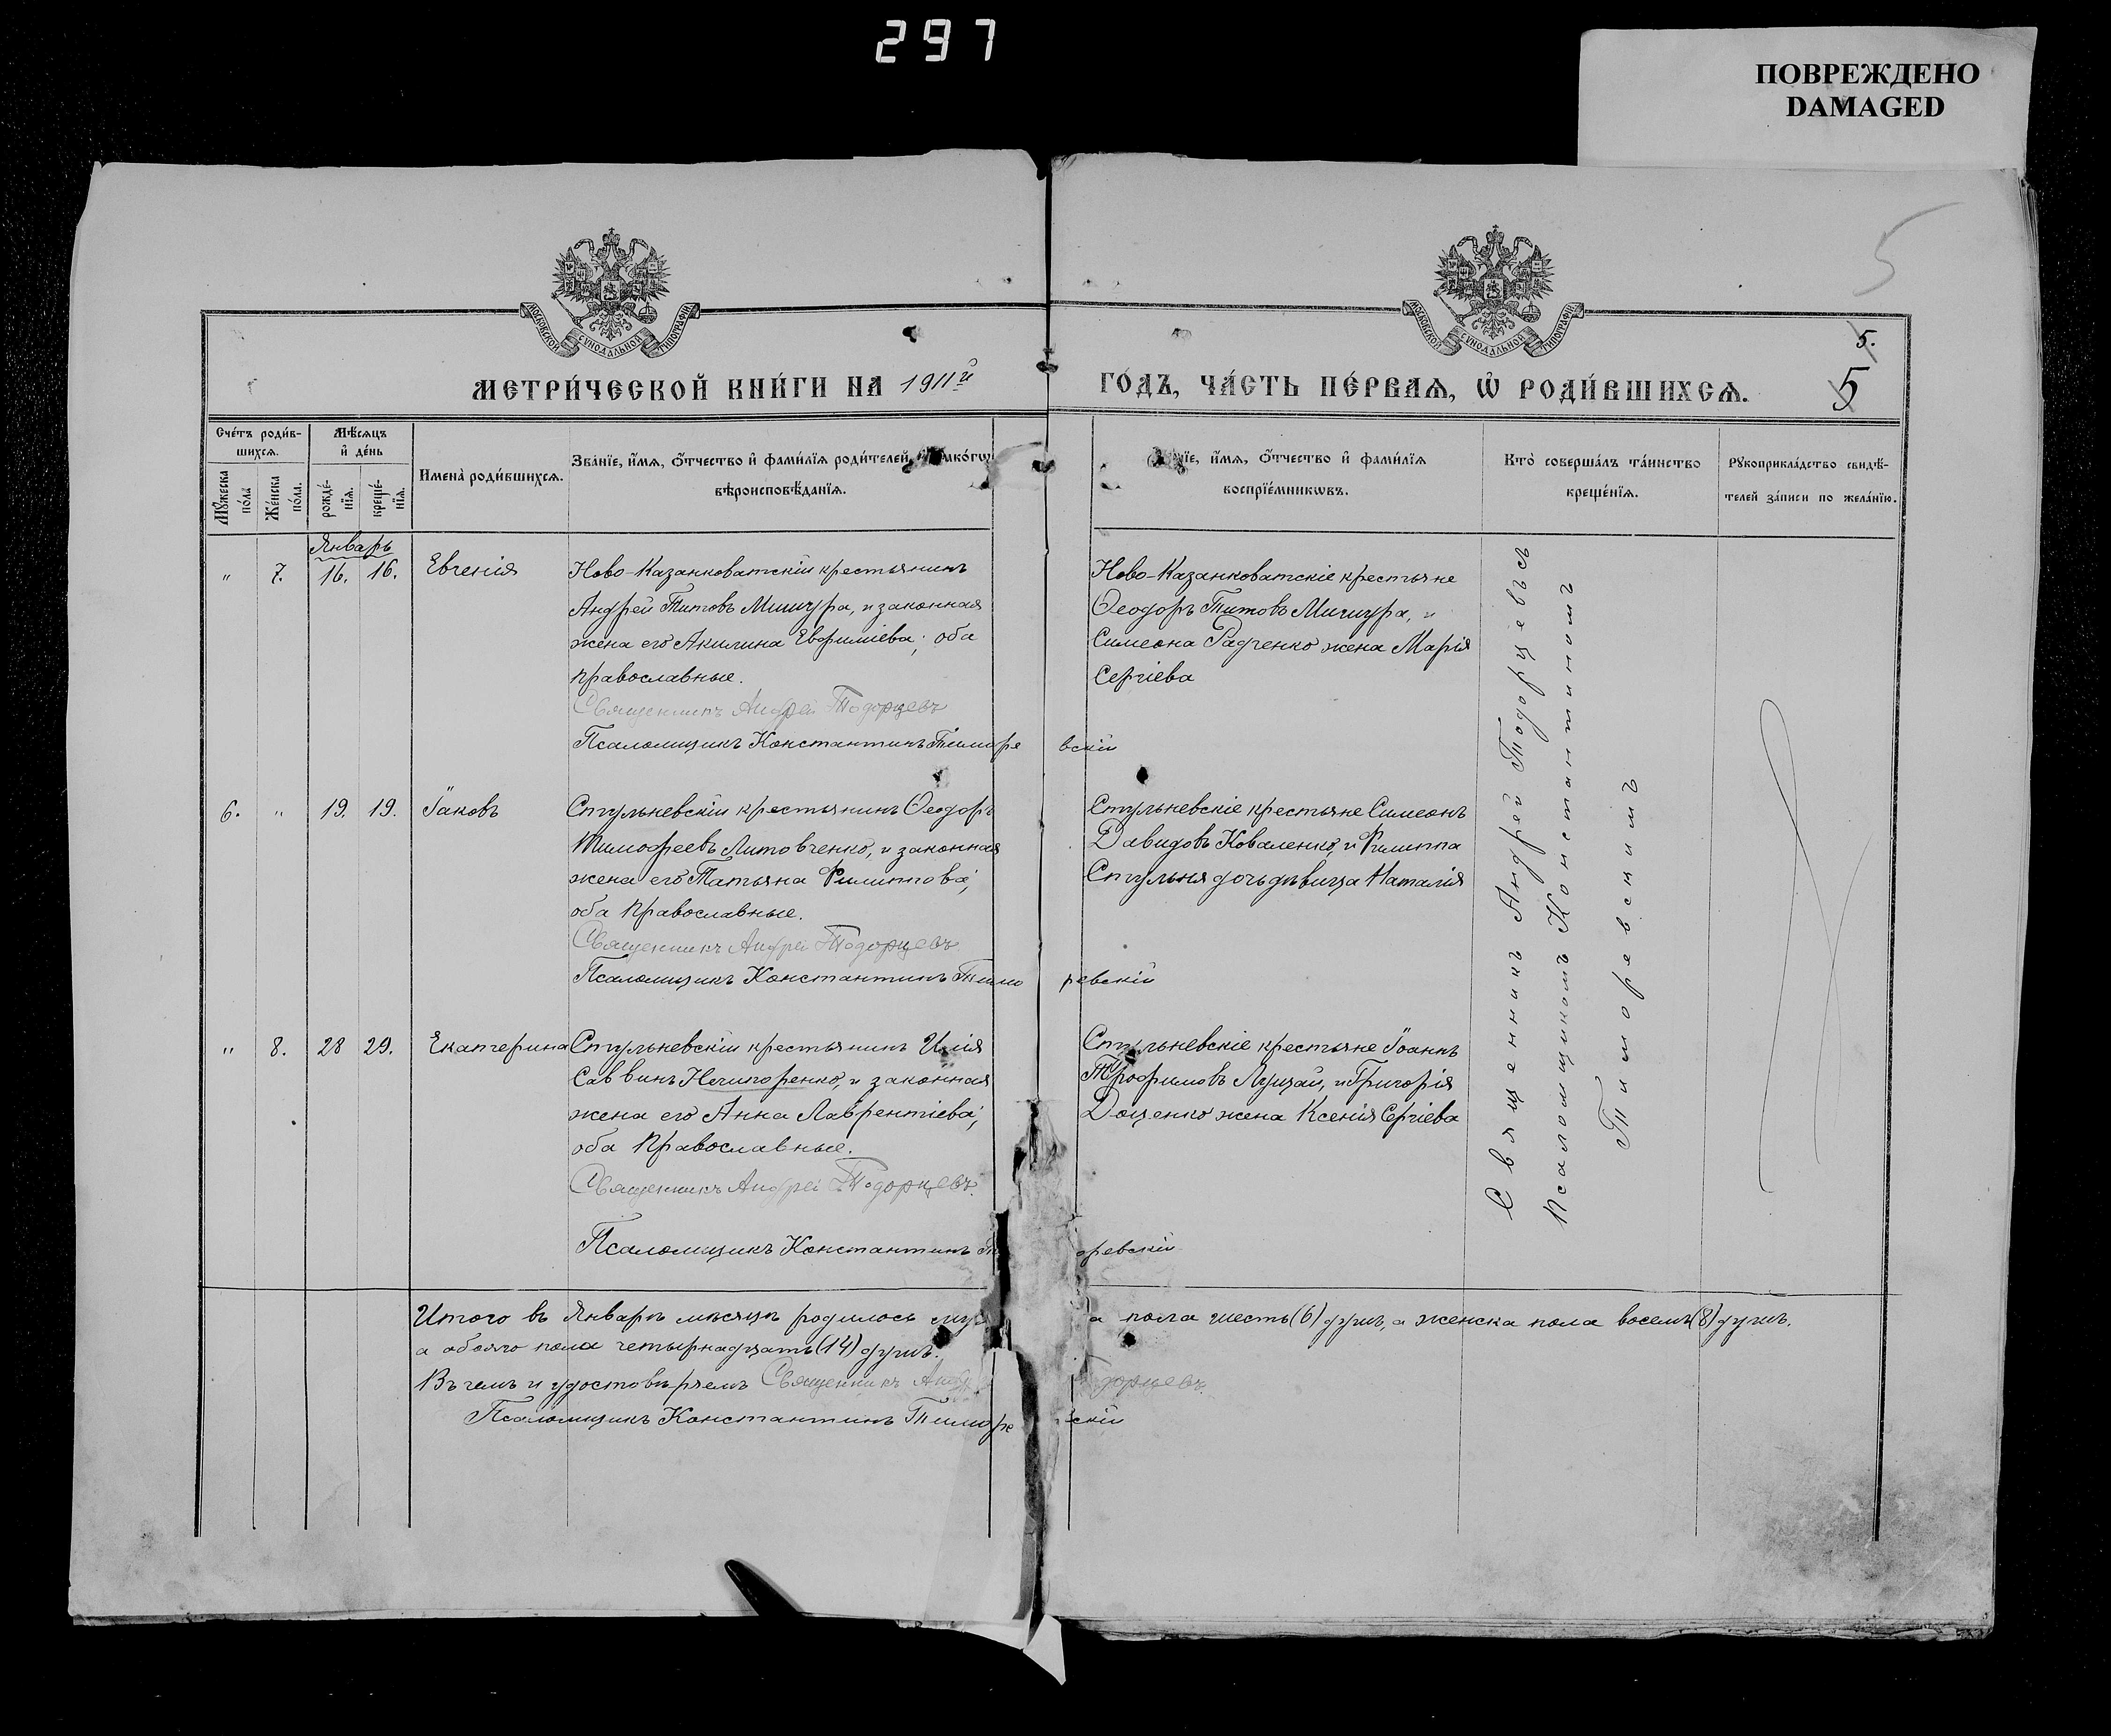 297
ПОВРЕЖДЕНО
DAMAGED
5
МОСКОВСКОЙ СѴНОДАЛЬНОЙ ТИПОГРАФІИ
МОСКОВСКОЙ СѴНОДАЛЬНОЙ ТИПОГРАФІИ
5.
5
МЕТРИ́ЧЕСКОЙ КНИ́ГИ НА 1911й
ГО́ДЪ, ЧА́СТЬ ПЕ́РВАѦ, Ѡ҆ РОДИ́ВШИХСѦ.
Сче́тъ роди́в-
шихсѧ.
Мѣ́сѧцъ
и҆ де́нь
Мꙋ́жеска
по́ла
Же́нска
по́ла.
рожде́-
нїѧ.
креще́-
нїѧ.
Имена̀ роди́вшихсѧ.
Зва́нїе, и҆́мѧ, ѻ҆́тчество и҆ фами́лїѧ роди́телей,
вѣроисповѣ́данїѧ.
и҆́мѧ, ѻ҆́тчество и҆ фами́лїѧ
воспрїе́мникѡвъ.
Кто̀ соверша́лъ та́инство
креще́нїѧ.
Рꙋкоприкла́дство свидѣ́-
телей за́писи по жела́нїю.
Январь
" 7. 16. 16. Евгенія
Ново-Казанковатскій крестьянинъ
Андрей Титовъ Мишура, и законная
жена его Акилина Евфиміева; оба
православные.
Священникъ Андрей Тодорцевъ
Псаломщикъ Константинъ Тиморе вскій
Ново-Казанковатскіе крестьяне
Ѳеодоръ Титовъ Мишура, и
Симеона Радченко жена Марія
Сергіева
6. " 19. 19. Іаковъ
Стульневскій крестьянинъ Ѳеодоръ
Тимофеевъ Литовченко, и законная
жена его Татьяна Филиппова;
оба Православные.
Священникъ Андрей Тодорцевъ
Псаломщикъ Константинъ Тимо ревскій
Стульневскіе крестьяне Симеонъ
Давидовъ Коваленко, и Филиппа
Стульня дочь дѣвица Наталія
" 8. 28 29. Екатерина
Стульневскій крестьянинъ Илія
Саввинъ Нечипоренко, и законная
жена его Анна Лаврентіева;
оба Православные.
Священникъ Андрей Тодорцевъ.
Псаломщикъ Константинъ Ти оревскій
Стульневскіе крестьяне Іоаннъ
Трофимовъ Луцай, и Григорія
Доценко жена Ксенія Сергіева
Священникъ Андрей Тодорцевъ съ
Псаломщикомъ Константиномъ
Тиморевскимъ
Итого въ Январѣ мѣсяцѣ родилось му а пола шесть (6) душъ, а женска пола восемь (8) душъ.
а обоего пола четырнадцать (14) душъ.
Въ чемъ и удостовѣряемъ Священникъ Андр дорцевъ
Псаломщикъ Константинъ Тиморе скій